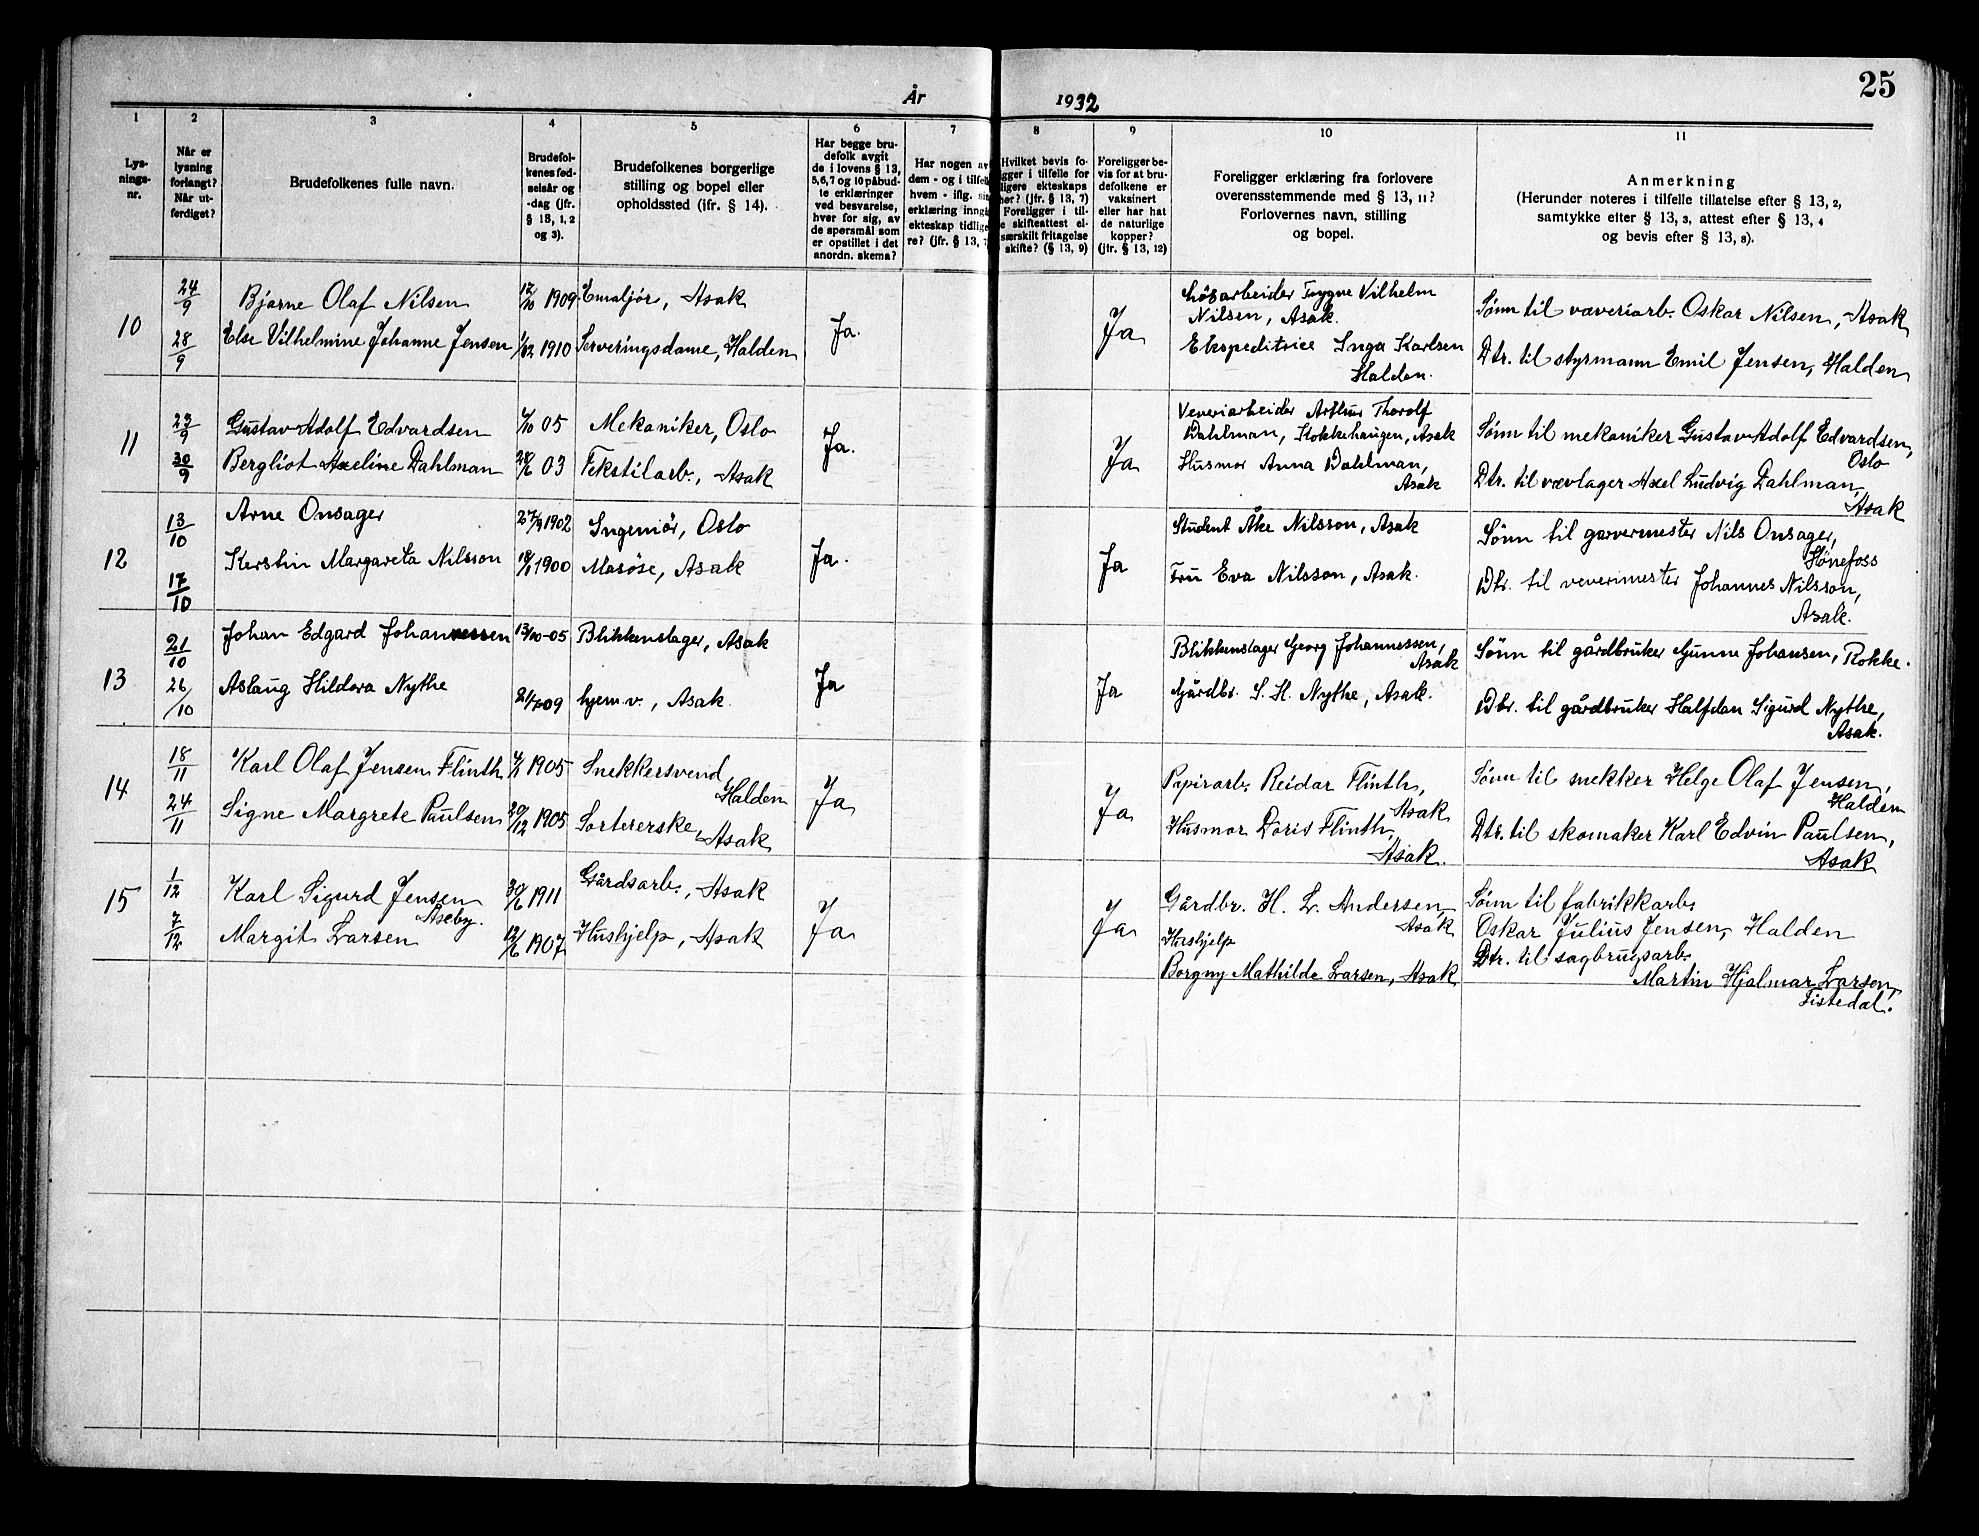 25
År 1932
1 2 3 4 5 6 7 8 9 10 11
Lys-
nings-
nr.
Når er
lysning
forlangt?
Når ut-
ferdiget?
Brudefolkenes fulle navn.
Brudefol-
kenes fød-
selsår og
-dag (jfr.
§ 13, 1, 2
og 3).
Brudefolkenes borgerlige
stilling og bopel eller
opholdssted (ifr. § 14).
Har begge bru-
defolk avgit
de i lovens § 13,
5,6,7 og 10 påbud-
te erklæringer
ved besvarelse,
hver for sig, av
de spørsmål som
er opstillet i det
anordn. skema?
Har nogen av
dem - og i tilfelle
hvem - iflg. sin
erklæring inngå
ekteskap tidlige
re? (jfr. § 13, 7
Hvilket bevis fo-
gger i tilfelle for
ligere ekteskaps
hør? (jfr. § 13, 7)
Foreligger i til-
e skifteattest el-
særskilt fritagelse
skifte? (§ 13, 9)
Foreligger be-
vis for at bru-
defolkene er
vaksinert
eller har hat
de naturlige
kopper?
(jfr. § 13, 12)
Foreligger erklæring fra forlovere
overensstemmende med § 13, 11?
Forlovernes navn, stilling
og bopel.
Anmerkning
(Herunder noteres i tilfelle tillatelse efter § 13, 2,
samtykke efter § 13, 3, attest efter § 13, 4
og bevis efter § 13, 8).
10
24/9
28/9
Bjarne Olaf Nilsen
Else Vilhelmine Johanne Jensen
12/10 1909
1/02 1910
Emaljør, Asak
Serveringsdame, Halden
Ja.
Ja
Løsarbeider Trygve Vilhelm
Nilsen, Asak.
Ekspeditrice Inga Karlsen
Halden.
Sønn til væveriarb. Oskar Nilsen, Asak
Dtr. til styrmann Emil Jensen, Halden
11
23/9
30/9
Gustav Adolf Edvardsen
Bergliot Axeline Dahlman
/10 05
03
Mekaniker, Oslo
Tekstilarb., Asak
Ja.
Ja
Veveriarbeider Arthur Thorolf
Dahlman, Stokkehaugen, Asak
Husmor Anna Dahlman,
Asak
Sønn til mekaniker Gustav Adolf Edvardsen,
Oslo
Dtr. til vævlager Axel Ludvig Dahlman,
Asak
12
13/10
17/10
Arne Onsager
Kerstin Margareta Nilsson
27/9 1902
18/1 1900
Ingeniør, Oslo
Masøse, Asak
Ja.
Ja
Student Åke Nilsson, Asak
Fru Eva Nilsson, Asak.
Sønn til garvermester Nils Onsager,
Hønefoss
Dtr. til vevermester Johannes Nilsson,
Asak.
13
21/10
26/10
Johan Edgard Johannessen
Aslaug Hildora Nythe
13/10-05
09
Blikkenslager, Asak
hjem.v., Asak.
Ja
Ja
Blikkenslager Georg Johannessen,
Asak
Gårdbr. S. H. Nythe, Asak.
Sønn til gårdbruker Gunne Johansen, Rokke.
Dtr. til gårdbruker Halfdan Sigurd Nythe,
Asak.
14
18/11
24/11
Karl Olaf Jensen Flinth
Signe Margrete Paulsen
1905
20/12 1905
Snekkersvend,
Halden
Sortererske,
Asak
Ja
Ja
Papirarb. Reidar Flinth,
Asak
Husmor Doris Flinth,
Asak.
Sønn til snekker Helge Olaf Jensen,
Halden
Dtr. til skomaker Karl Edvin Paulsen,
Asak
15
1/12
7/12
Karl Sigurd Jensen
Aseby.
Margit Larsen
30/6 1911
12/6 1907
Gårdsarb., Asak
Hushjelp, Asak
Ja
Ja
Gårdbr. H. L. Andersen,
Asak
Hushjelp
Borgny Mathilde Larsen, Asak
Sønn til fabrikkarb.
Oskar Julius Jensen, Halden
Dtr. til sagbrugsarb.
Martin Hjalmar Larsen,
Tistedal.